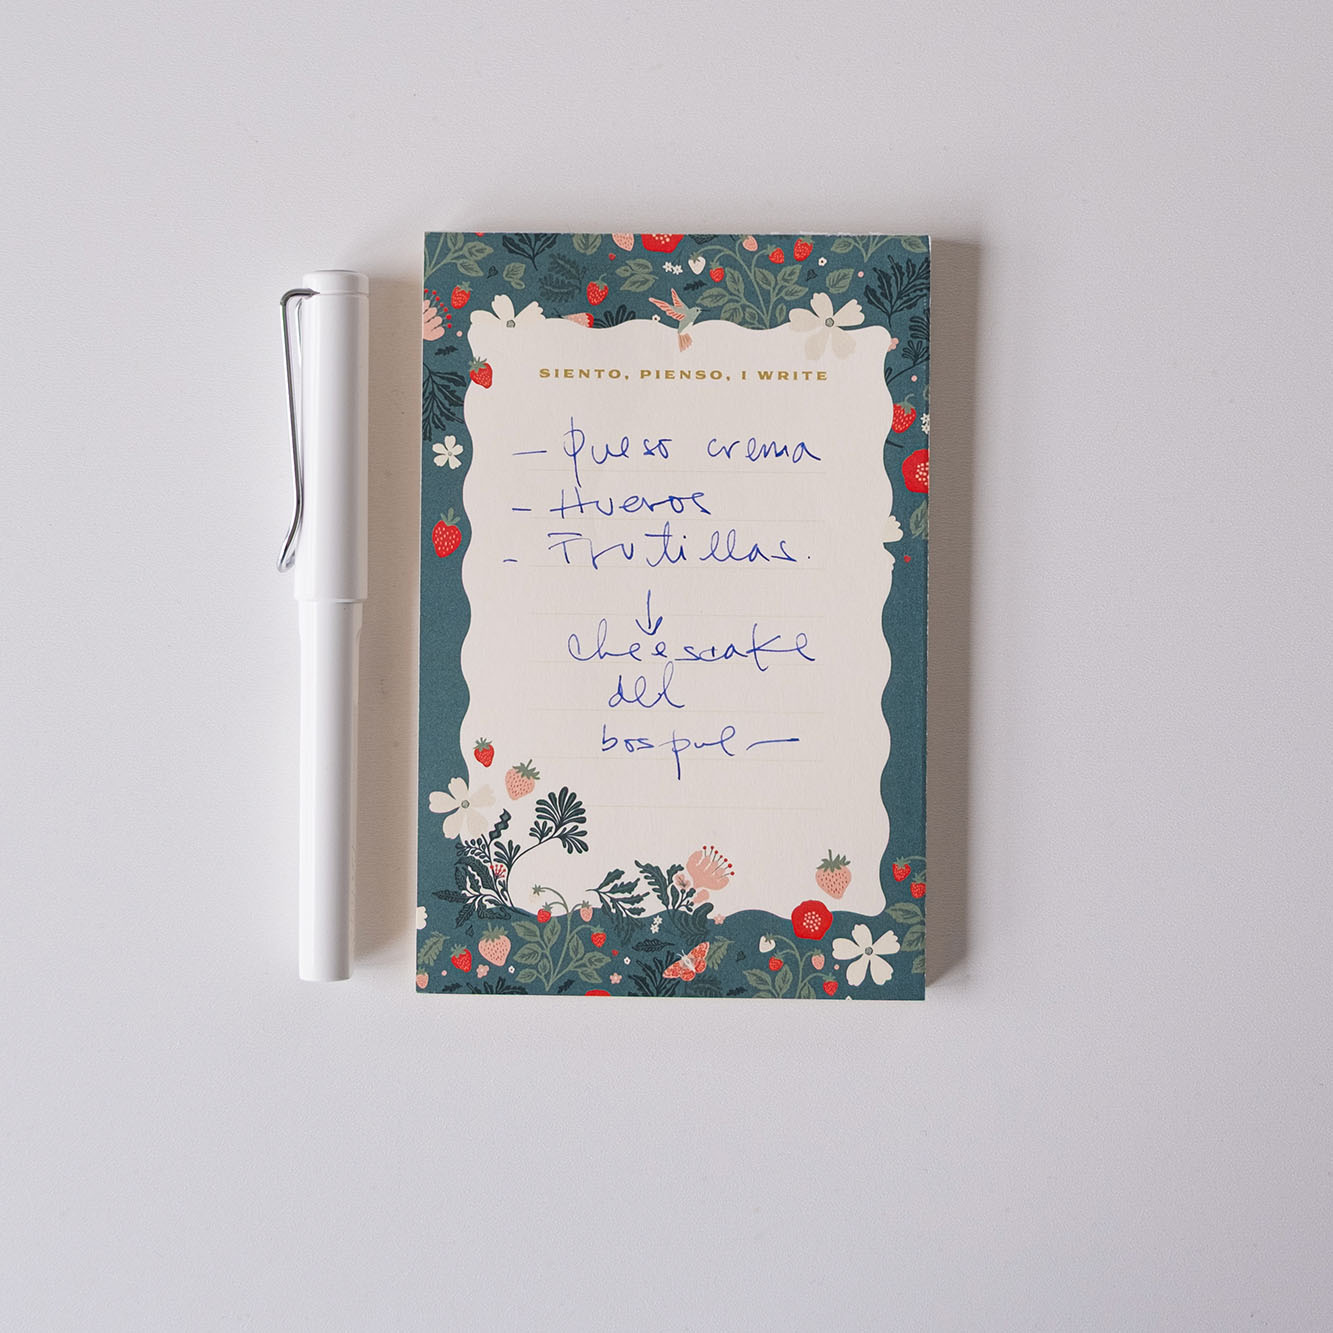 SIENTO, PIENSO, I WRITE
- Queso crema
- Huevos
- Frutillas.
↓
cheescake
del